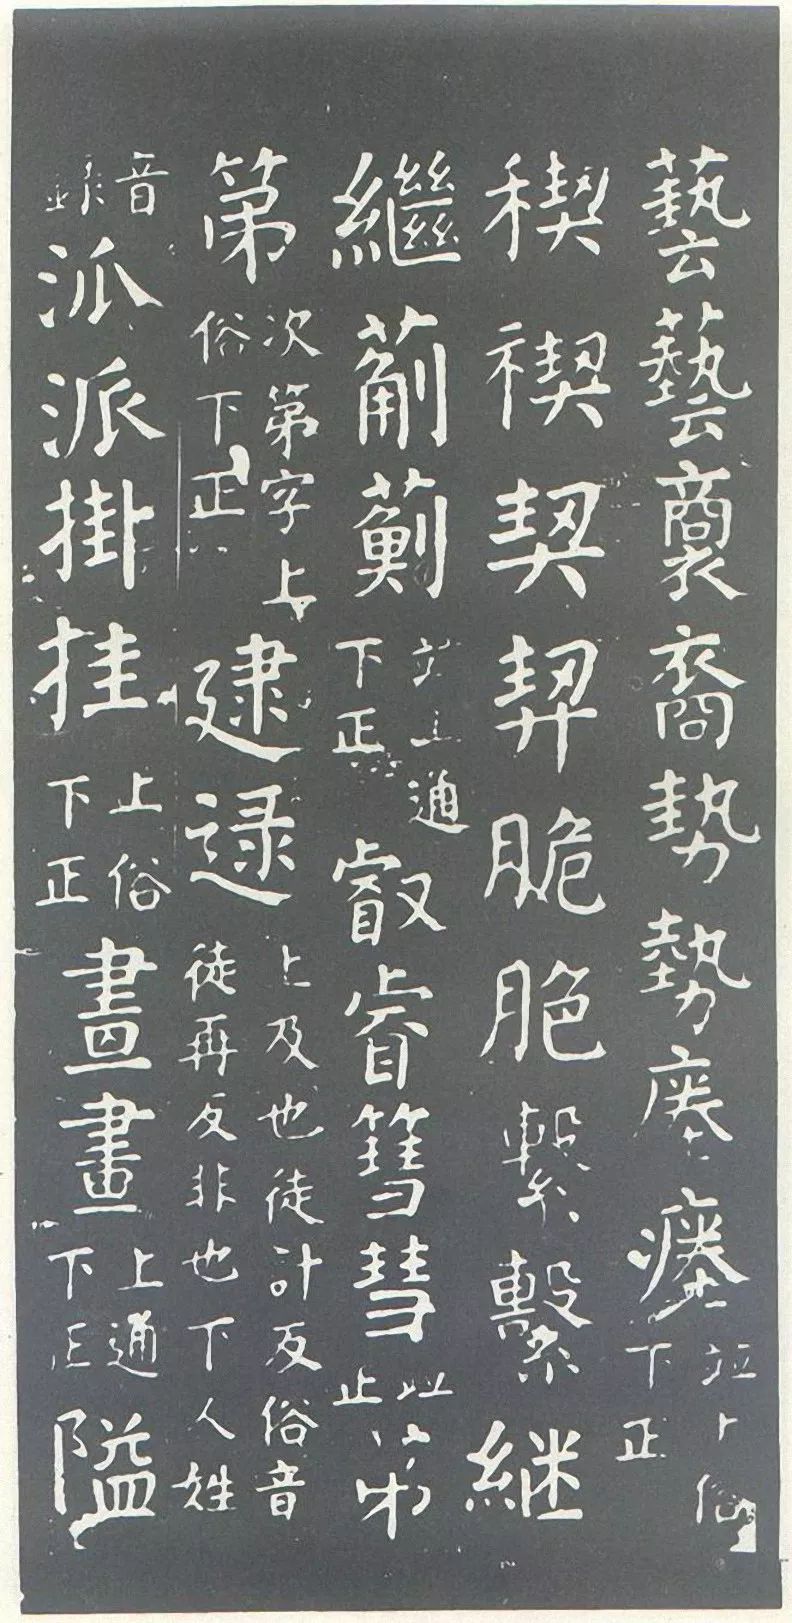 藝藝裔裔勢勢瘞瘞並上俗下正
稧禊契契脆脃繋繫継
繼葪薊並上通下正叡睿篲彗並正苐
第次第字上俗下正逮逯上及也徒計反俗音徒再反非也下人姓
音錄派派掛挂上俗下正畫畫上通下正隘